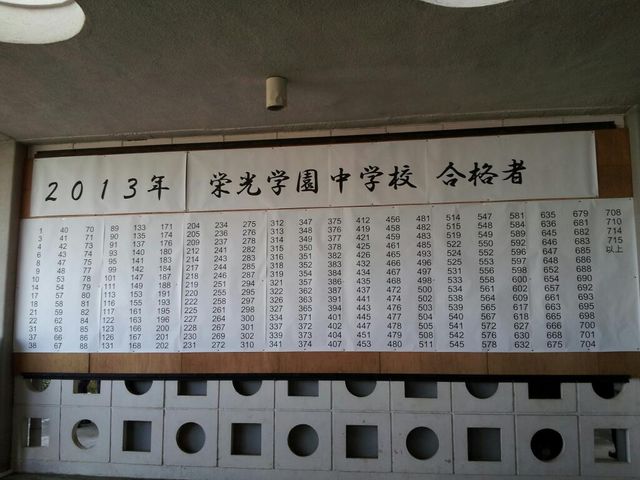 2013年 栄光学園中学校 合格者
1 40 70 89 133 171 204 234 275 312 347 375 412 456 481 514 547 581 635 679 708
3 41 71 90 135 174 205 236 276 313 348 376 419 458 482 515 548 584 636 681 710
4 42 73 91 137 176 209 237 278 314 349 377 421 459 483 519 549 589 645 682 714
6 43 74 93 140 180 212 241 282 315 350 378 425 461 485 522 550 590 646 683 715
8 47 75 95 141 183 214 244 285 316 351 382 426 463 493 524 552 596 647 685 以上
9 48 77 99 142 184 217 246 287 318 353 383 432 466 496 525 553 597 648 686
10 53 78 101 147 187 218 246 291 319 354 384 434 467 497 531 556 598 652 688
14 54 79 111 149 188 219 251 294 321 357 386 435 468 498 533 558 600 654 690
17 57 80 113 153 191 220 255 295 322 362 387 436 472 500 534 561 602 657 692
18 58 81 116 155 193 222 258 297 326 363 391 441 474 502 538 564 609 661 693
21 59 82 117 161 195 225 261 298 330 369 394 443 476 503 539 565 617 663 695
22 62 84 122 163 196 227 264 300 334 371 401 445 477 504 540 567 618 665 698
31 63 85 123 166 200 229 265 301 337 372 402 447 478 505 541 572 627 666 700
37 66 86 126 167 201 230 269 302 339 373 404 451 479 508 542 576 630 668 701
38 67 88 131 168 202 231 272 310 341 374 407 453 480 511 545 578 632 675 704